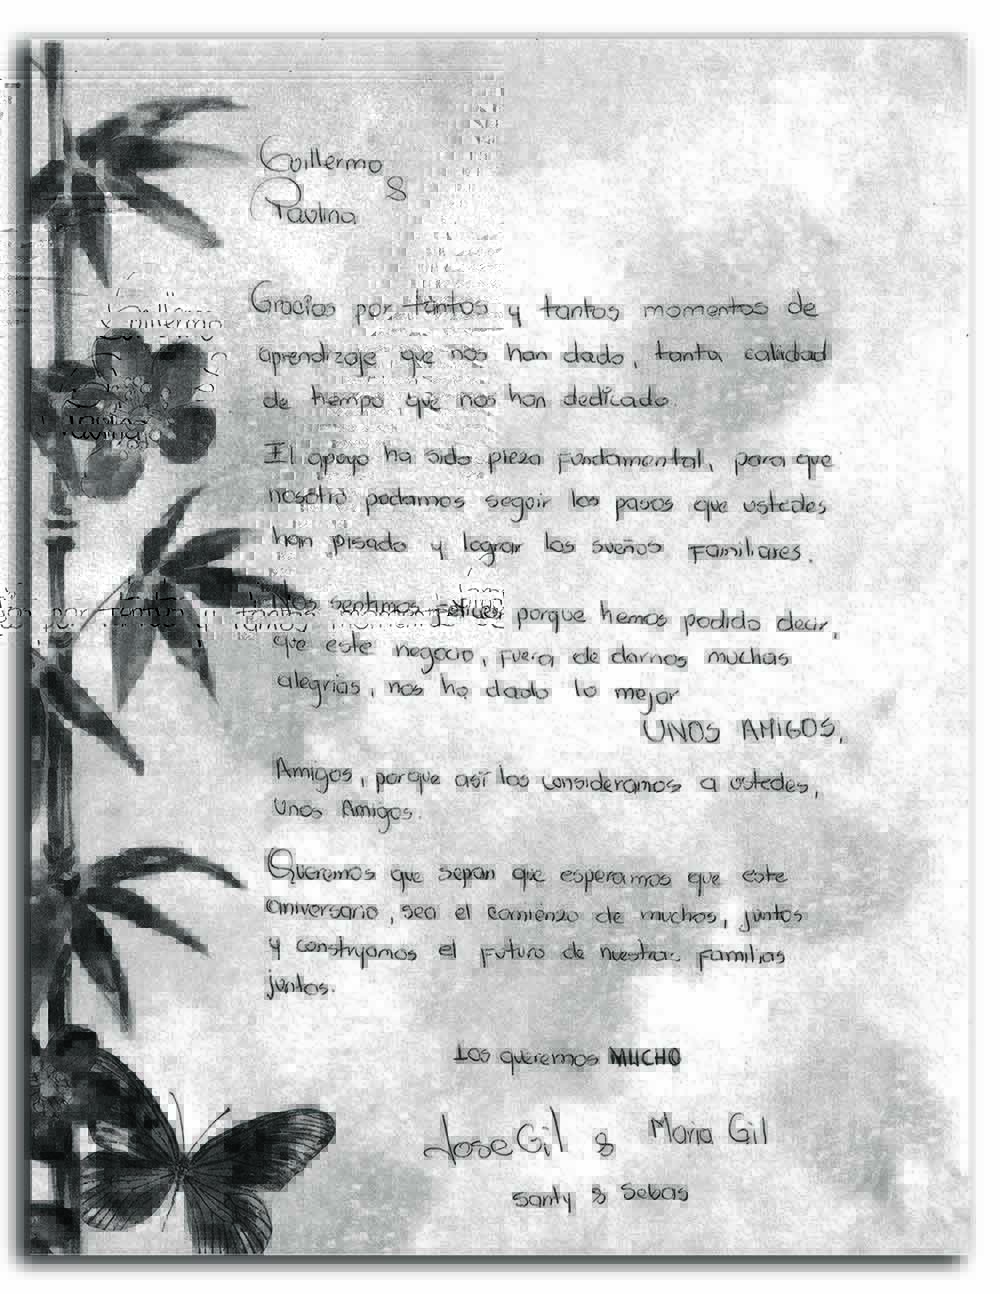 Guillermo
&
Paulina
Gracias por tantos y tantos momentos de
aprendizaje que nos han dado, tanta calidad
de tiempo que nos han dedicado.
El apoyo ha sido pieza fundamental, para que
nosotro podamos seguir los pasos que ustedes
han pisado y lograr los sueños familiares.
Nos sentimos felices porque hemos podido decir,
que este negocio, fuera de darnos muchas
alegrias, nos ha dado lo mejor
UNOS AMIGOS,
Amigos, porque así los consideramos a ustedes,
Unos Amigos.
Queremos que sepan que esperamos que este
aniversario, sea el comienzo de muchos, juntos
y construyamos el futuro de nuestras familias
juntos.
Los queremos MUCHO
Jose Gil & Maria Gil
Santy & Sebas